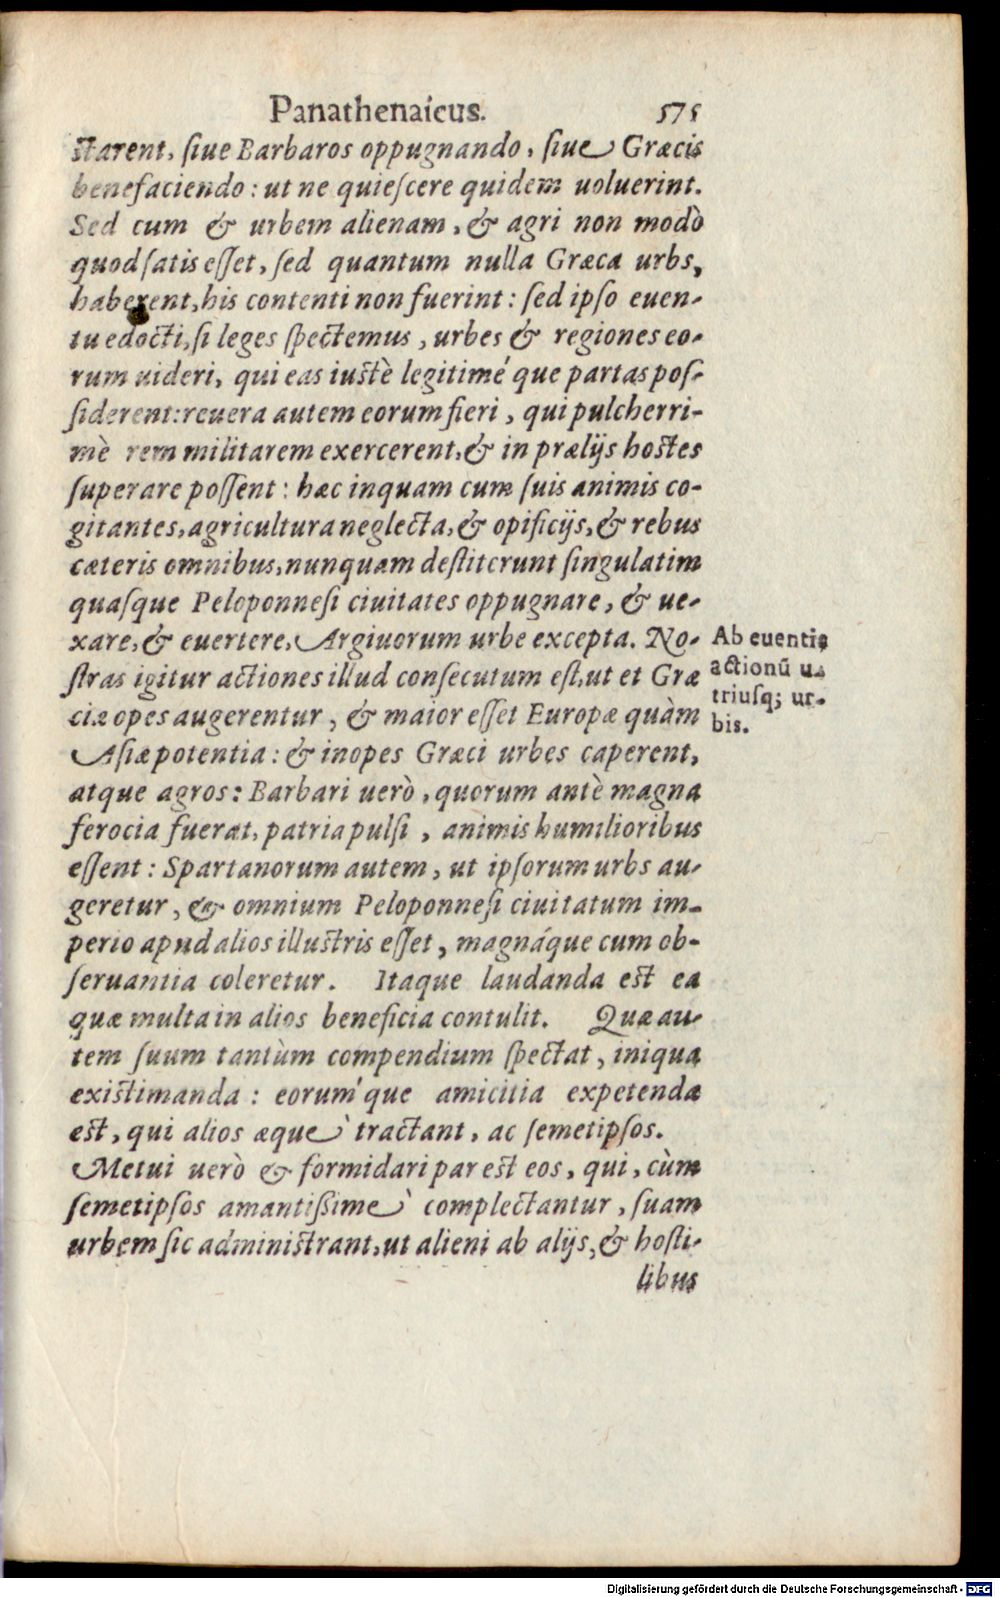 Panathenaicus. 575
ſtarent, ſiue Barbaros oppugnando, ſiue Græcis
benefaciendo: ut ne quieſcere quidem uoluerint.
Sed cum & urbem alienam, & agri non modò
quod ſatis eſſet, ſed quantum nulla Græca urbs,
haberent, his contenti non fuerint: ſed ipſo euen-
tu edocti, ſi leges ſpectemus, urbes & regiones eo-
rum uideri, qui eas iustè legitimé que partas poſ-
ſiderent: reuera autem eorum fieri, qui pulcherri-
mè rem militarem exercerent, & in prælijs hostes
ſuperare poſſent: hæc inquam cum ſuis animis co-
gitantes, agricultura neglecta, & opificijs, & rebus
cæteris omnibus, nunquam deſtiterunt ſingulatim
quaſque Peloponneſi ciuitates oppugnare, & ue-
xare, & euertere, Argiuorum urbe excepta. No-
ſtras igitur actiones illud conſecutum eſt, ut et Græ
ciæ opes augerentur, & maior eſſet Europæ quàm
Aſiæ potentia: & inopes Græci urbes caperent,
atque agros: Barbari uerò, quorum antè magna
ferocia fuerat, patria pulſi, animis humilioribus
eſſent: Spartanorum autem, ut ipſorum urbs au-
geretur, & omnium Peloponneſi ciuitatum im-
perio apud alios illuſtris eſſet, magnáque cum ob-
ſeruantia coleretur. Itaque laudanda est ea
quæ multa in alios beneficia contulit. Quæ au-
tem ſuum tantùm compendium ſpectat, iniqua
existimanda: eoruḿ que amicitia expetenda
est, qui alios æquè tractant, ac ſemetipſos.
Metui uerò & formidari par est eos, qui, cùm
ſemetipſos amantiſsimè complectantur, ſuam
urbem ſic administrant, ut alieni ab alijs, & hoſti-
libus
Ab euentis
actionũ u-
triuſq; ur-
bis.
Digitalisierung gefördert durch die Deutsche Forschungsgemeinschaft - DFG